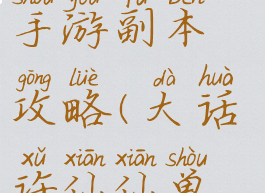 shǒu yóu fù běn
手游副本
gōng lüè dà huà
攻略(大话
xǔ xiān xiān shòu
许仙仙兽